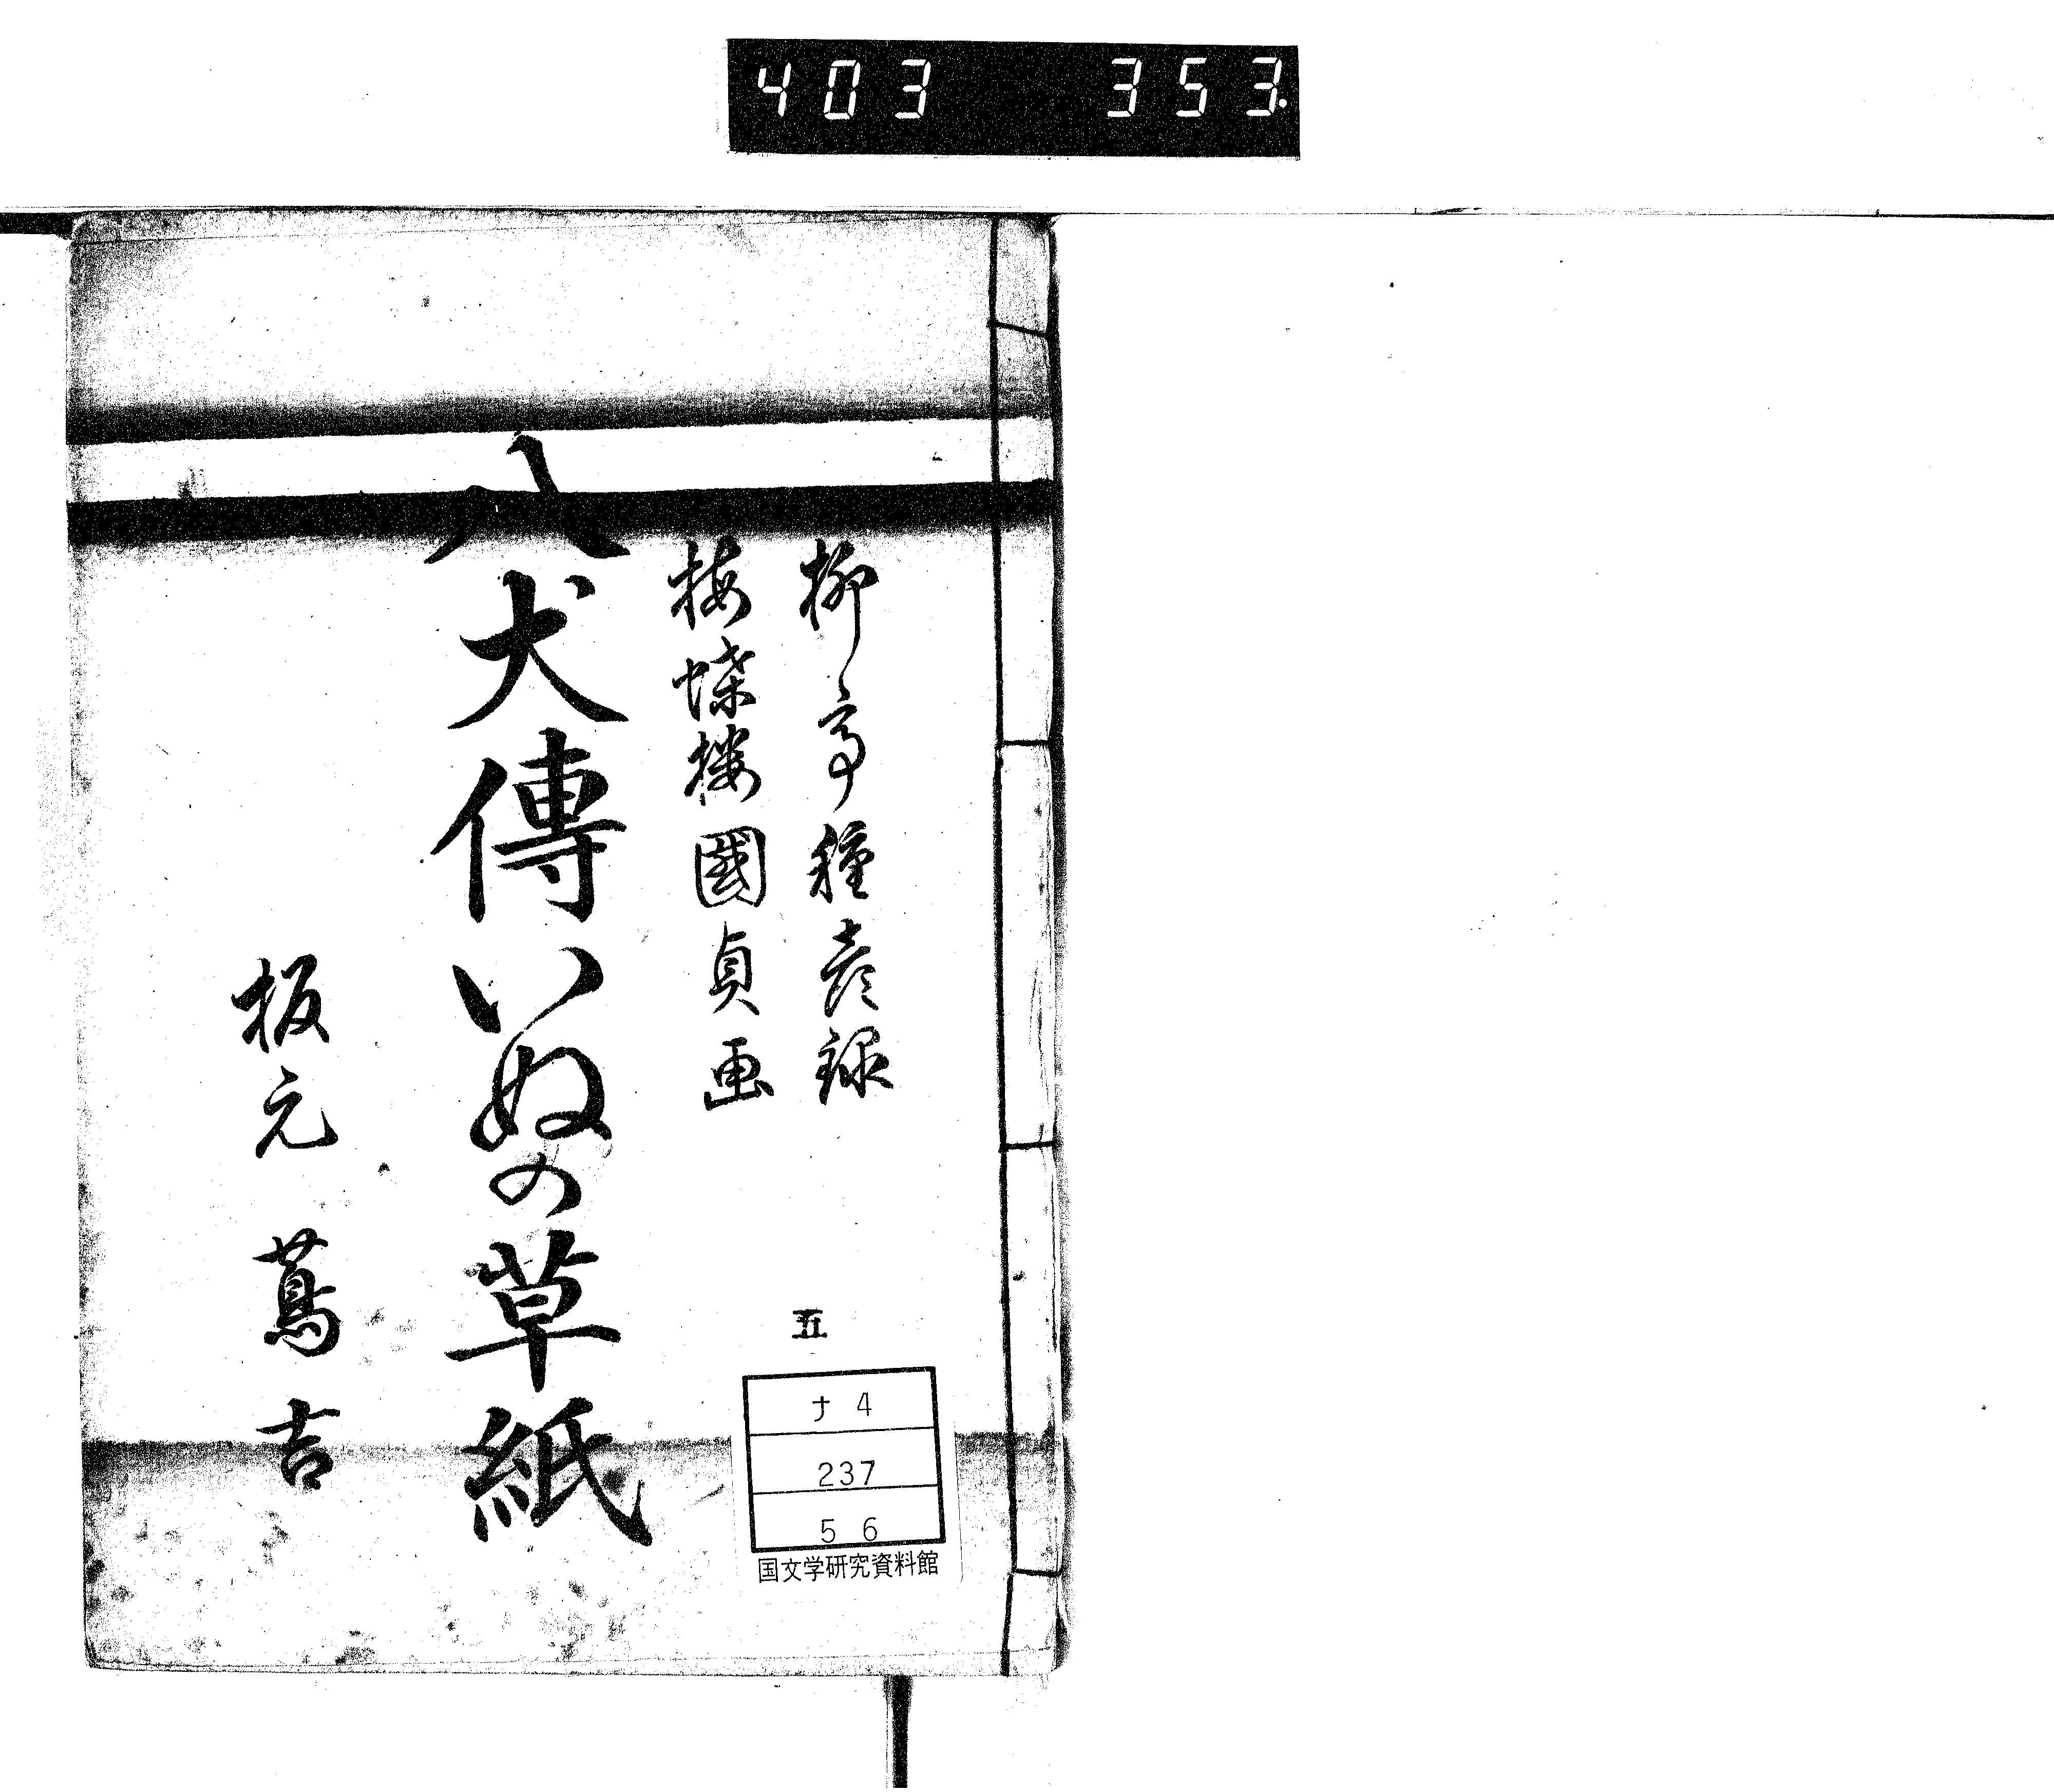 403 353.
柳亭種彦録
梅蝶楼國貞画
八犬傳いぬの草紙
板元 蔦吉
五
ナ4
237
56
国文学研究資料館